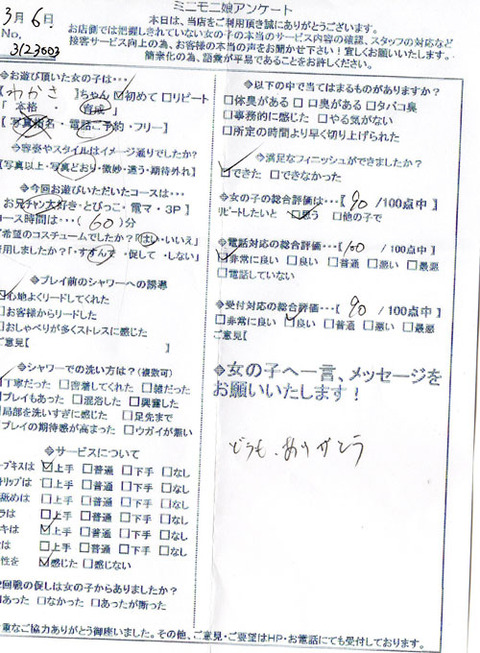 ミニモニ娘アンケート
3月6日
No. 3123003
本日は、当店をご利用頂き誠にありがとうございます。
お店側では把握しきれていない女の子の本当のサービス内容の確認、スタッフの対応など
接客サービス向上の為、お客様の本当の声をお聞かせ下さい！宜しくお願いいたします。
簡素化の為、語彙が平易であることをお許しください。
◆お遊び頂いた女の子は…
【わかさ】ちゃん ☑初めて □リピート
「本格・育成」
【写真指名・電話ご予約・フリー】
◆容姿やスタイルはイメージ通りでしたか？
【写真以上・写真どおり・微妙・違う・期待外れ】
◆今回お遊びいただいたコースは…
お兄チャン大好き・とびっこ・電マ・3P】
コース時間は…(60)分
希望のコスチュームでしたか？「はい・いいえ」
用しましたか？・すすんで・促して・しない」
◆プレイ前のシャワーへの誘導
☑心地よくリードしてくれた
□お客様からリードした
□おしゃべりが多くストレスに感じた
ご意見【 】
◆シャワーでの洗い方は？(複数可)
丁寧だった □密着してくれた □雑だった
プレイもあった □混浴した □興奮した
局部を洗いすぎに感じた □足先まで
プレイの期待感が高まった □ウガイが無い
◆サービスについて
ープキスは ☑上手 □普通 □下手 □なし
トリップは □上手 □普通 □下手 □なし
舐めは □上手 □普通 □下手 □なし
ラは □上手 □普通 □下手 □なし
キは ☑上手 □普通 □下手 □なし
は □上手 □普通 □下手 □なし
性を ☑感じた □感じない
回戦の促しは女の子からありましたか？
あった □なかった □あったが断った
◆以下の中で当てはまるものがありますか？
□体臭がある □口臭がある □タバコ臭
□事務的に感じた □やる気がない
□所定の時間より早く切り上げられた
◆満足なフィニッシュができましたか？
☑できた □できなかった
◆女の子の総合評価は…【90 /100点中】
リピートしたいと ☑思う □他の子で
◆電話対応の総合評価…【100 /100点中】
☑非常に良い □良い □普通 □悪い □最悪
□電話していない
◆受付対応の総合評価…【90 /100点中】
□非常に良い ☑良い □普通 □悪い □最悪
ご意見【 】
◆女の子へ一言、メッセージを
お願いいたします！
どうも、ありがとう
重なご協力ありがとう御座いました。その他、ご意見・ご要望はHP・お電話にても受付しております。